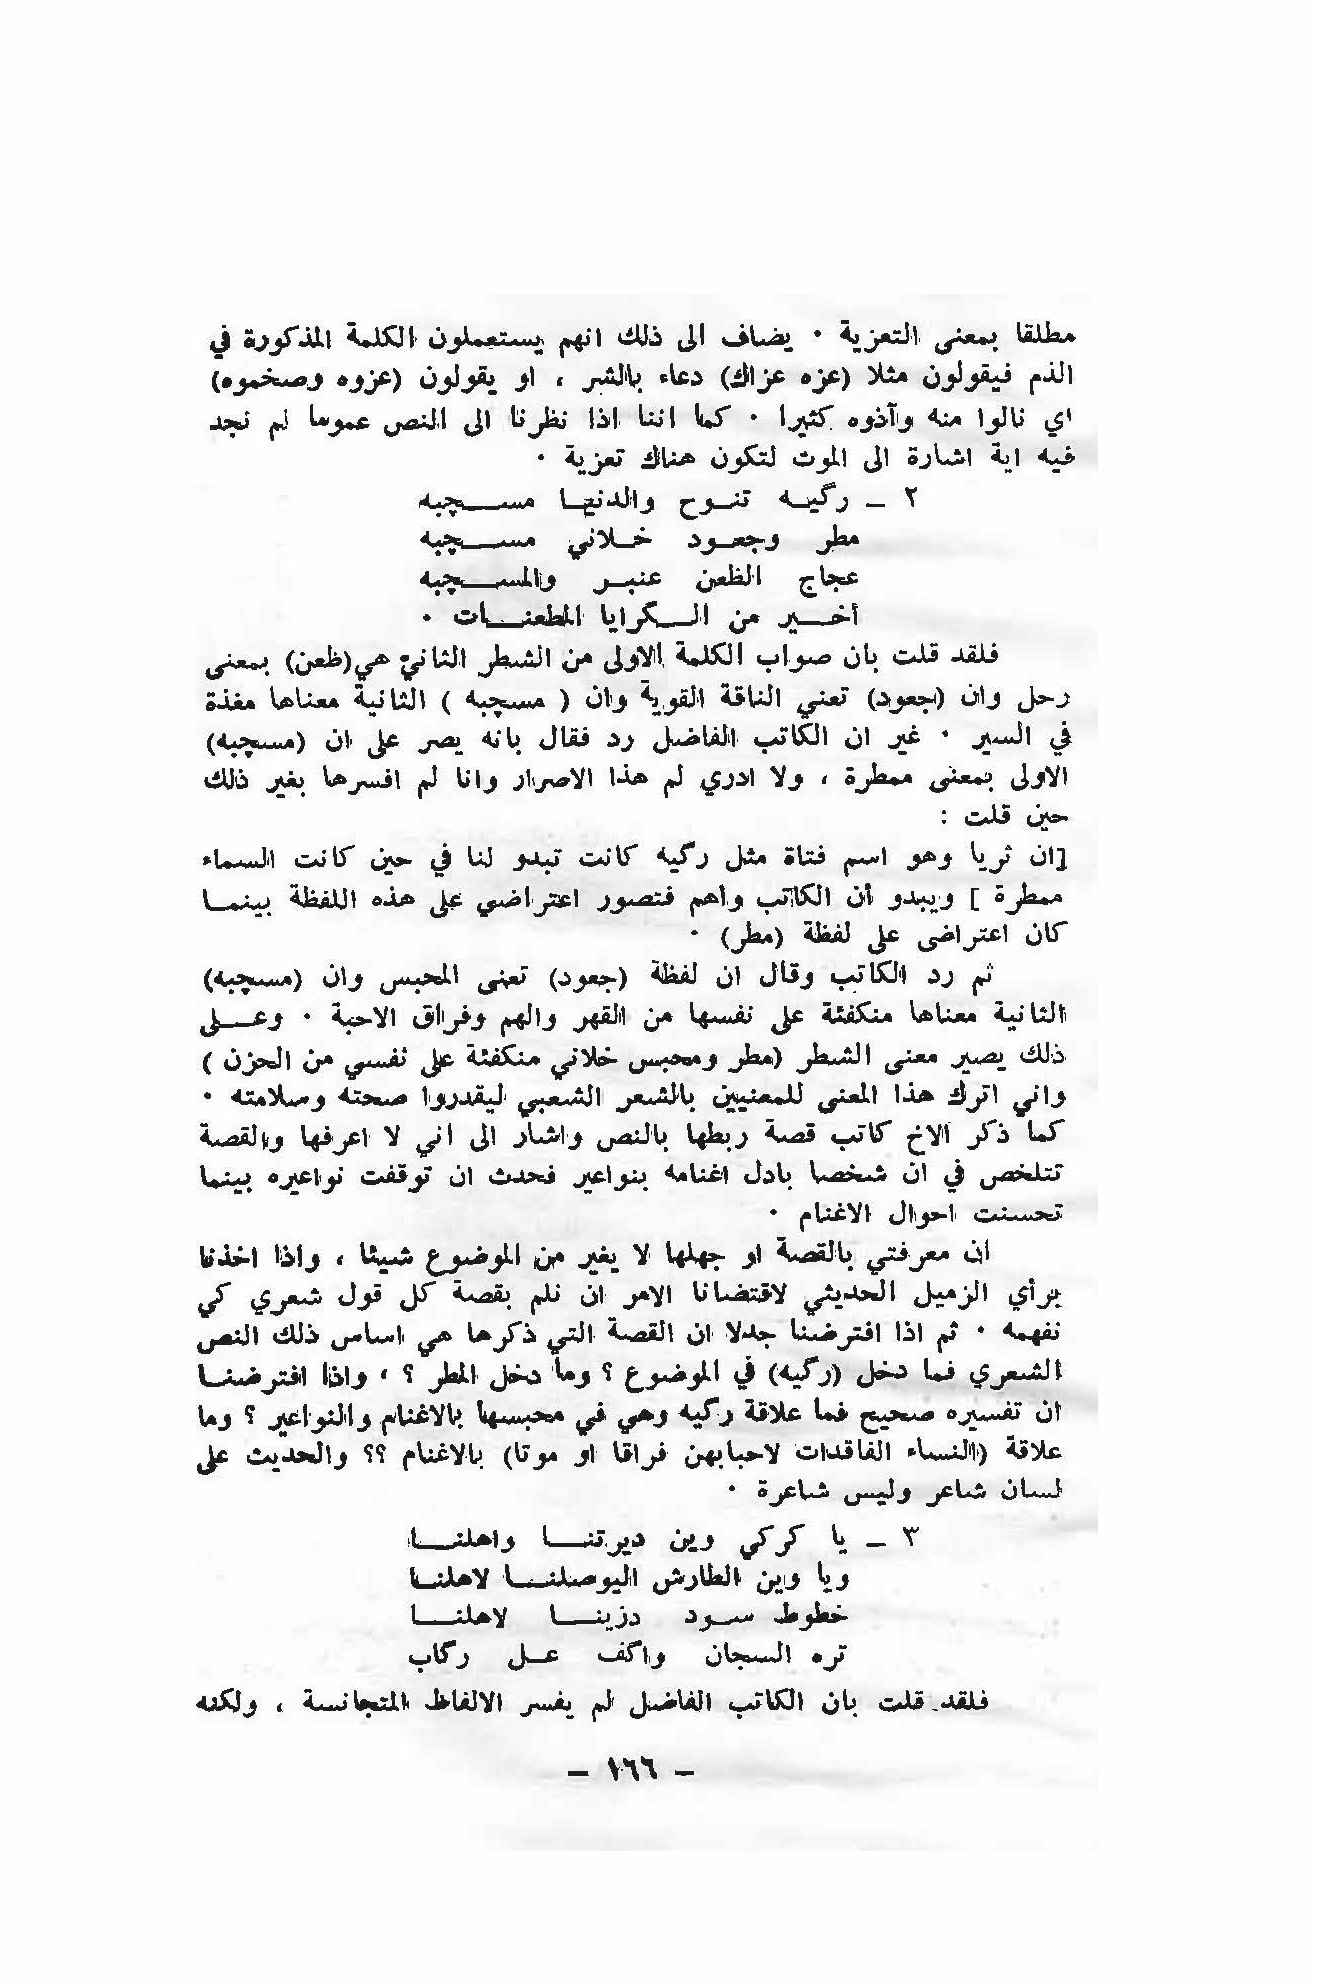 مطلقا بمعنى التعزية ٠ يضاف الى ذلك انهم يستعملون الكلمة المذكورة في
الذم فيقولون مثلا (عزه عزاك) دعاء بالشر ، او يقولون (عزوه وصخموه)
اي نالوا منه وآذوه كثيرا ٠ كما اننا اذا نظرنا الى النص عموما لم نجد
فيه اية اشارة الى الموت لتكون هناك تعزية ٠
٢ ـ رگيـه تنـوح والدنيـا مسـچبه
مطر وجعـود خـلاني مسـچبه
عجاج الظعن عنبـر والمسـچبه
أخـير من الـگرايا المطعنـات ٠
فلقد قلت بان صواب الكلمة الاولى من الشطر الثاني هي(ظعن) بمعنى
رحل وان (جعود) تعني الناقة القوية وان ( مسچبه ) الثانية معناها مغذة
في السير ٠ غير ان الكاتب الفاضل رد فقال بانه يصر على ان (مسچبه)
الاولى بمعنى ممطرة ، ولا ادري لم هذا الاصرار وانا لم افسرها بغير ذلك
حين قلت :
[ان ثريا وهو اسم فتاة مثل رگيه كانت تبدو لنا في حين كانت السماء
ممطرة ] ويبدو أن الكاتب واهم فتصور اعتراضي على هذه اللفظة بينمـا
كان اعتراضى على لفظة (مطر) ٠
ثم رد الكاتب وقال ان لفظة (جعود) تعنى المحبس وان (مسچبه)
الثانية معناها منكفئة على نفسها من القهر والهم وفراق الاحبة ٠ وعـلى
ذلك يصير معنى الشطر (مطر ومحبس خلاني منكفئة على نفسي من الحزن )
واني اترك هذا المعنى للمعنيين بالشعر الشعبي ليقدروا صحته وسلامته ٠
كما ذكر الاخ كاتب قصة ربطها بالنص واشار الى اني لا اعرفها والقصة
تتلخص في ان شخصا بادل اغنامه بنواعير فحدث ان توقفت نواعيره بينما
تحسنت احوال الاغنام ٠
ان معرفتي بالقصة او جهلها لا يغير من الموضوع شيئا ، واذا اخذنا
برأي الزميل الحديثي لاقتضانا الامر ان نلم بقصة كل قول شعري كي
نفهمه ٠ ثم اذا افترضنا جدلا ان القصة التي ذكرها هي اساس ذلك النص
الشعري فما دخل (رگيه) في الموضوع ؟ وما دخل المطر ؟ ، واذا افترضنـا
ان تفسيره صحيح فما علاقة رگيه وهي في محبسها بالاغنام والنواعير ؟ وما
علاقة (النساء الفاقدات لاحبابهن فراقا او موتا) بالاغنام ؟؟ والحديث على
لسان شاعر وليس شاعرة ٠
٣ ـ يا كركي وين ديرتنـا واهلنـا
ويا وين الطارش اليوصلنـا لاهلنـا
خطوط سـود دزينـا لاهلنـا
تره السجان واگف عـل ركاب
فلقد قلت بان الكاتب الفاضل لم يفسر الالفاظ المتجانسة ، ولكنه
– ١٦٦ –